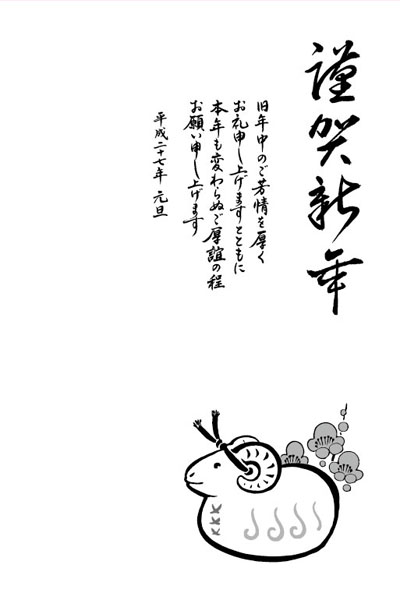 謹賀新年
旧年中のご芳情を厚く
お礼申し上げますとともに
本年も変わらぬご厚誼の程
お願い申し上げます
平成二十七年 元旦